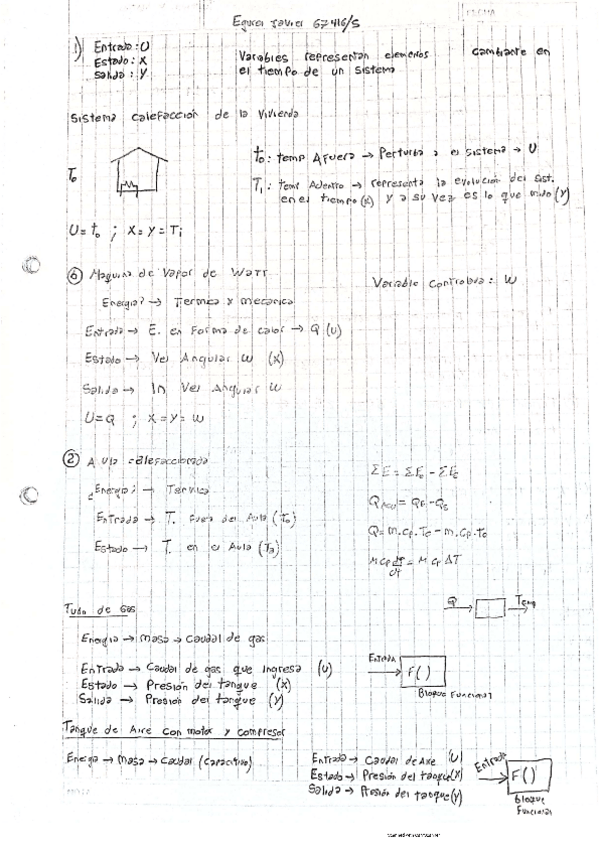 Javier 67416/5
1) Entrada: U
Estado: X
Salida: Y
Variables representan elementos cambiante en
el tiempo de un sistema
Sistema calefacción de la Vivienda
To
to: temp Afuera → Perturba a el sistema → U
Ti: Temp Adentro → representa la evolución del sist.
en el tiempo (X) y a su vez es lo que mido (Y)
U = to ; X = Y = Ti
⑥ Maquina de Vapor de Watt
Variable Controlada: W
Energia? → Termica y mecanica
Entrada → E. en Forma de calor → Q (U)
Estado → Vel Angular W (X)
Salida → Vel Angular W
U = Q ; X = Y = W
② Aula calefaccionada
¿Energia? → Termica
Entrada → T. Fuera del Aula (To)
Estado → T. en el Aula
Q = m.cp.To - m.cp.to
M cp dT/dt = M cp ΔT
Q Temp
Tubo de Gas
Energia → masa → Caudal de gas
Entrada → Caudal de gas que ingresa (U)
Estado → Presión del tanque (X)
Salida → Presión del tanque (Y)
Entrada F( )
Bloque Funcional
Tanque de Aire con motor y compresor
Energia → masa → Caudal (Capacitivo)
Entrada → Caudal de Aire (U)
Estado → Presión del tanque (X)
Salida → Presión del tanque (Y)
Entrada F( )
Bloque
Funcional